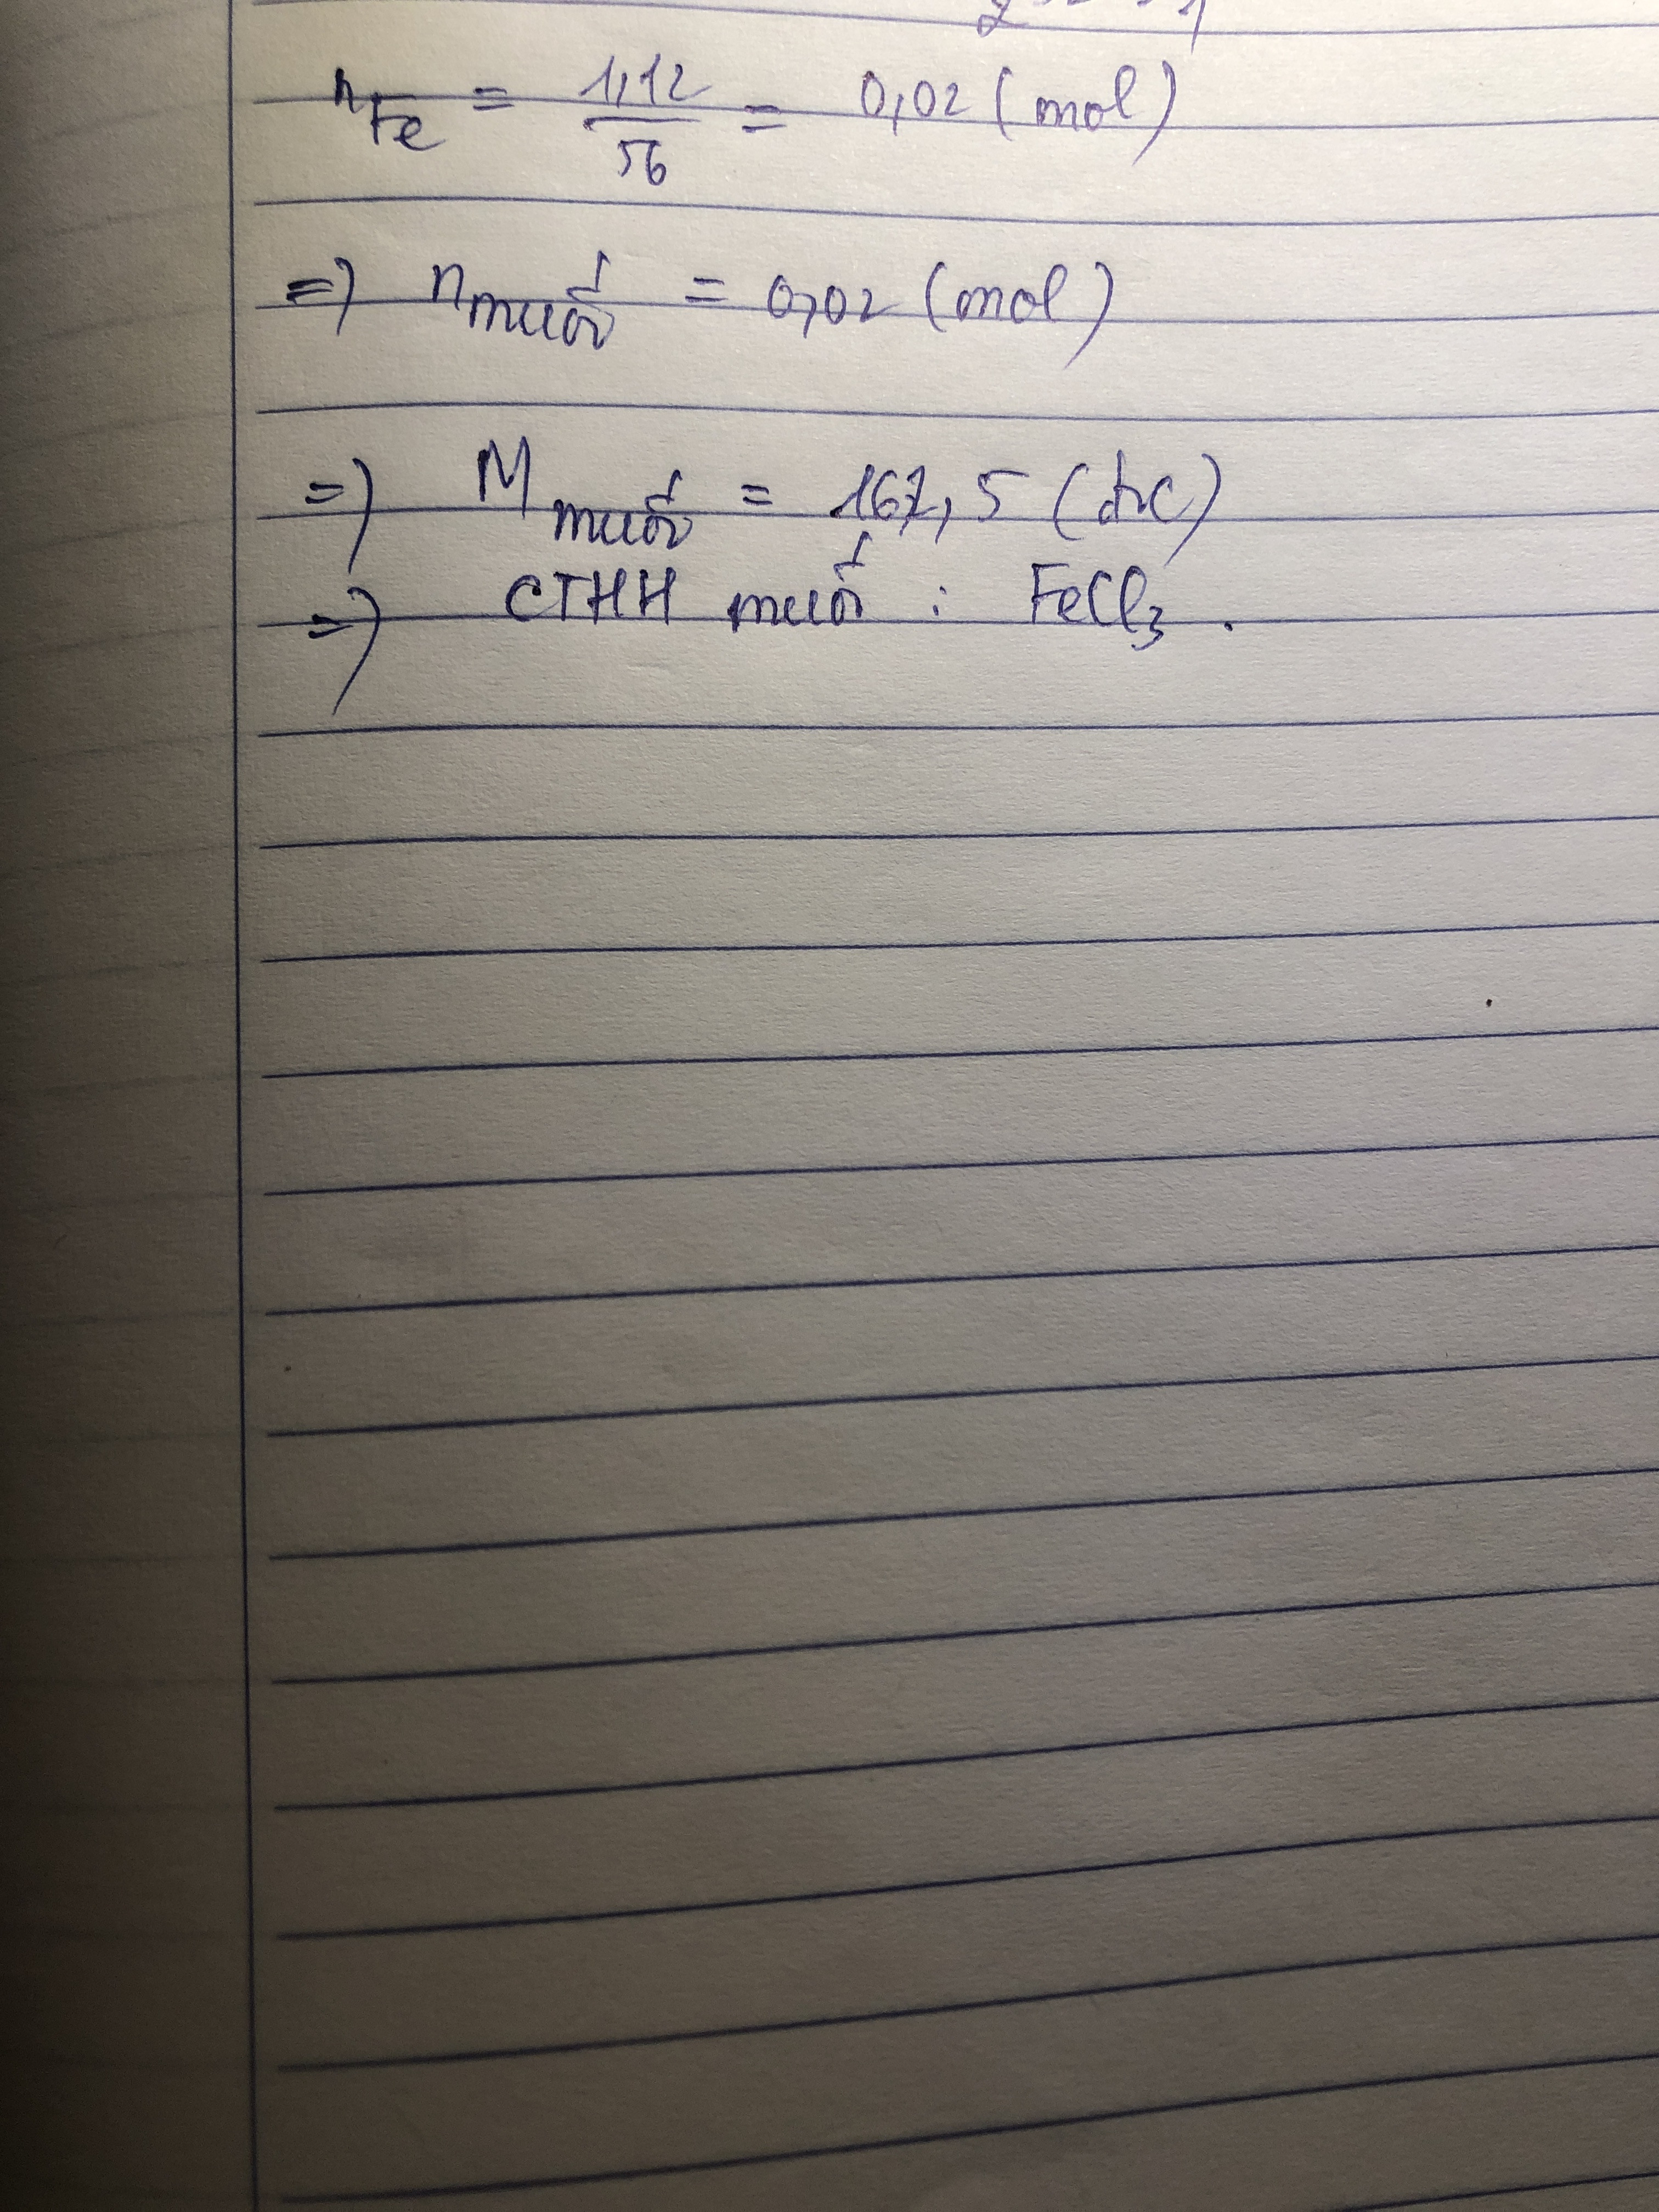 n Fe = 1,12 / 56 = 0,02 (mol)
=> n muối = 0,02 (mol)
=> M muối = 162,5 (đvC)
=> CTHH muối : FeCl3 .